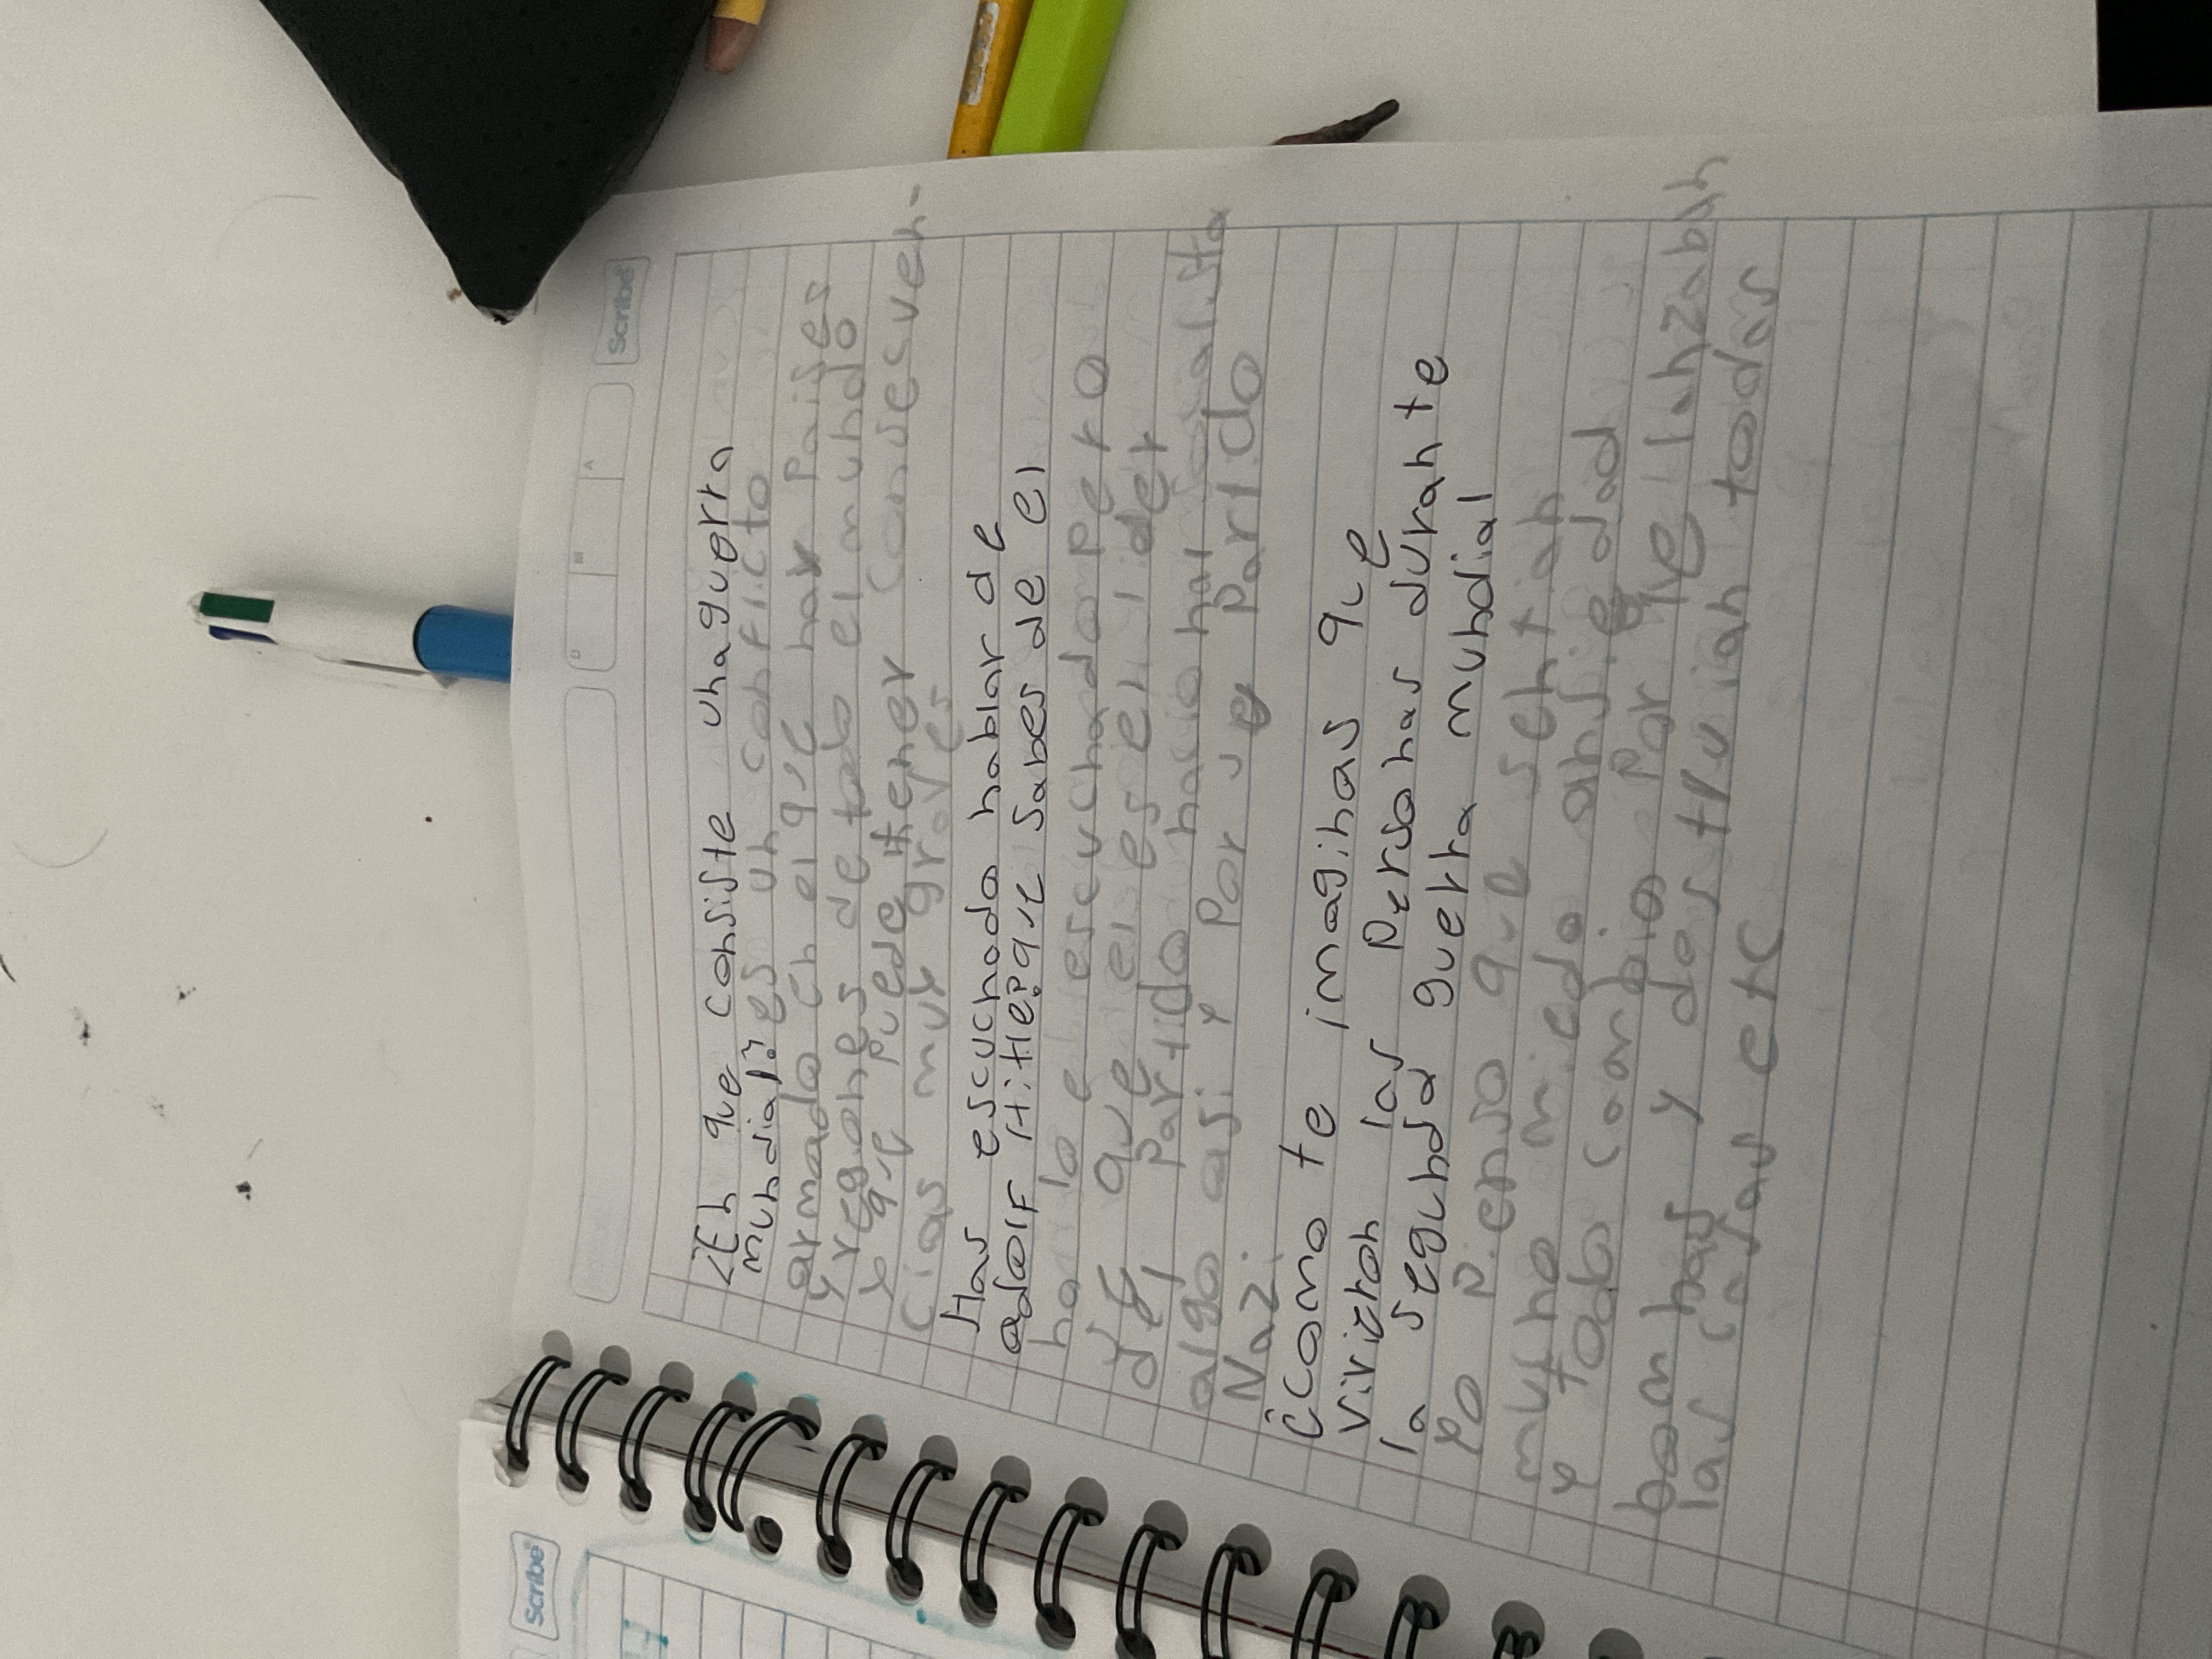 Scribe
D M A
¿Eh que consiste una guerra
mundial? es un conflicto
armado en el que hay paises
y regiones de todo el mundo
y que puede tener consecuen-
cias muy graves
Has escuchado hablar de
adolf Hitler? que sabes de el
no lo e escuchado pero
se que el es el lider
del partido nacional socialista
algo asi y por se partido
Nazi
¿Como te imaginas que
vivieron las personas durante
la segunda guerra mundial
yo pienso que sentian
mucho miedo ansiedad
y todo cambio por que lanzaban
bombas y destruian todas
las casas etc
Scribe